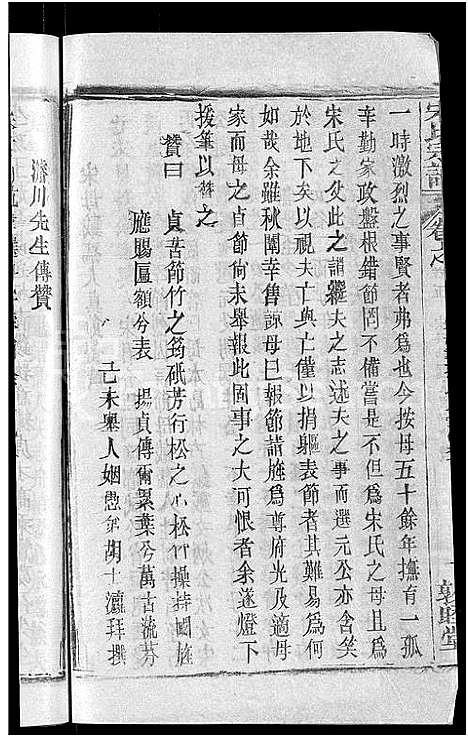 宋氏宗譜
卷之
敦睦堂
一時激烈之事賢者弗爲也今按母五十餘年撫有一孤
辛勤家政盤根錯節罔不備嘗是不但爲宋氏之母且爲
宋氏之父此之謂繼夫之志述夫之事而選元公亦含笑
於地下矣以視夫亡與亡僅以捐軀表節者其難易爲何
如哉余雖秋闈幸售諏母曰報節請旌爲尊府光及適母
家而如此貞節尚未舉報此固事之大可恨者余遂燈下
援筆以贊之
贊曰 貞苦節竹之筠砥芳行松之心松竹操持國旌
應賜匾額兮表 揚貞傳爾累葉兮萬古流芬
己未舉人姻愚弟胡士瀛拜撰
濟川先生傳贊